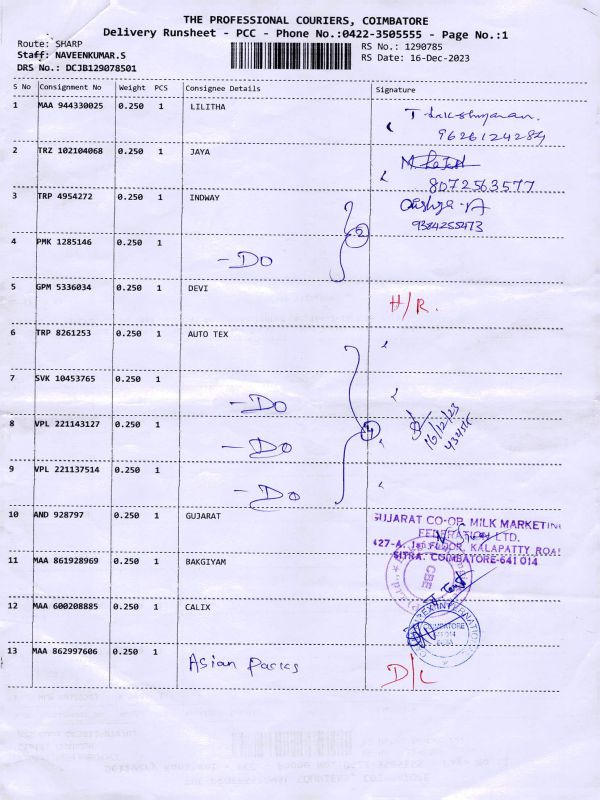 THE PROFESSIONAL COURIERS, COIMBATORE
Delivery Runsheet - PCC - Phone No.:0422-3505555 - Page No.:1
Route: SHARP
Staff: NAVEENKUMAR.S
DRS No.: DCJB129078501
RS No.: 1290785
RS Date: 16-Dec-2023
S No Consignment No Weight PCS Consignee Details Signature
1 MAA 944330025 0.250 1 LILITHA
9626124284
2 TRZ 102104068 0.250 1 JAYA
8072563577
3 TRP 4954272 0.250 1 INDWAY
9384255473
2
4 PMK 1285146 0.250 1 -DO
5 GPM 5336034 0.250 1 DEVI H/R.
6 TRP 8261253 0.250 1 AUTO TEX
7 SVK 10453765 0.250 1 -DO
8 VPL 221143127 0.250 1 -DO 4 16/12/23
9 VPL 221137514 0.250 1 -DO
10 AND 928797 0.250 1 GUJARAT
GUJARAT CO-OP. MILK MARKETING
FEDERATION LTD.
427-A, 1st FLOOR, KALAPATTY ROAD
SITRA, COIMBATORE-641 014
11 MAA 861928969 0.250 1 BAKGIYAM
CBE
12 MAA 600208885 0.250 1 CALIX
COIMBATORE
13 MAA 862997606 0.250 1 Asian Packs D/L